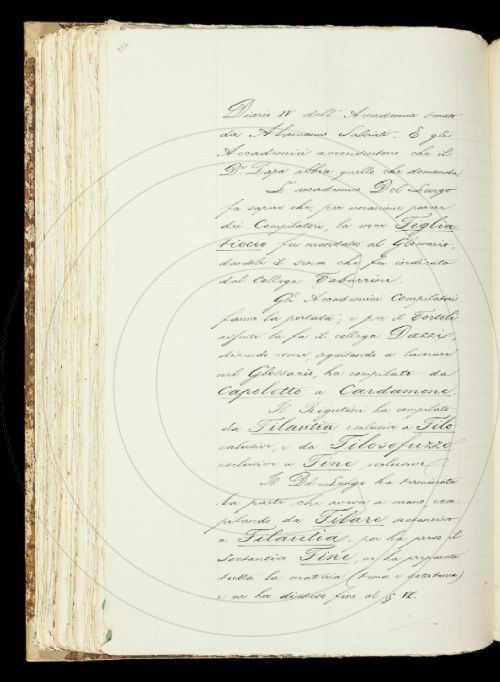 Diario IV dell'Accademia tenuto
da Alamanno Salviati. E gli
Accademici acconsentono che il
Dr Papa abbia quello che domanda.
L'accademico Del Lungo
fa sapere che, per unanime parere
dei Compilatori, la voce Teglia
ticcio fu mandata al Glossario,
dandole il senso che fu indicato
dal Collega Tabarrini.
Gli Accademici Compilatori
fanno la portata; e per il Tortoli
assente la fa il collega Dazzi,
dicendo come, seguitando a lavorare
nel Glossario, ha compilato da
Capoletto a Cardamone.
Il Rigutini ha compilato
da Filautia esclusive a Filo
esclusive, e da Filosofuzzo
esclusive a Fine esclusive.
Il Del Lungo ha terminata
la parte che aveva a mano, com
pilando da Filare sostantivo
a Filautia; poi ha preso il
Sostantivo Fine, ne ha preparata
tutta la materia (tema e
e ne ha disteso fine al § VI.